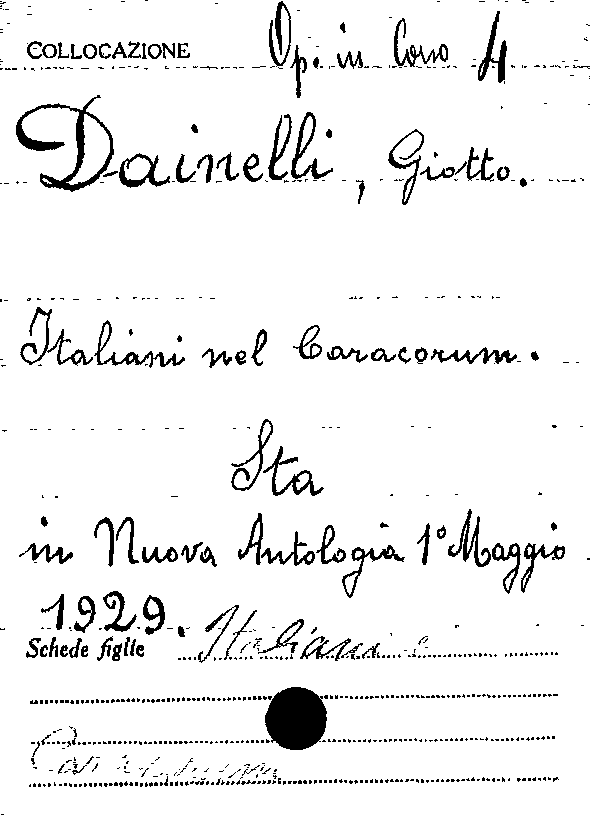 COLLOCAZIONE Op. in Corso 4
Dainelli, Giotto.
Italiani nel Caracorum.
Sta
in Nuova Antologia 1° Maggio
1929.
Schede figlie Italiani e
Caracorum